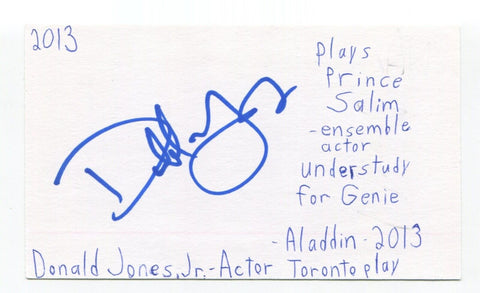 2013
plays
Prince
Salim
-ensemble
actor
understudy
for Genie
-Aladdin-2013
Donald Jones, Jr.-Actor Toronto play